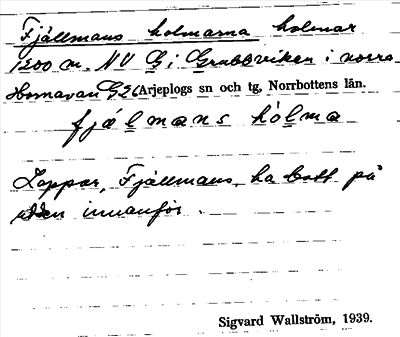 Fjällmans holmarna holmar
1500 m. NV G i Grabbviken i norra
Hornavan G36 Arjeplogs sn och tg, Norrbottens län.
fjálmans hòlma
Lappar, Fjällmans, ha bott på
den innanför.
Sigvard Wallström, 1939.